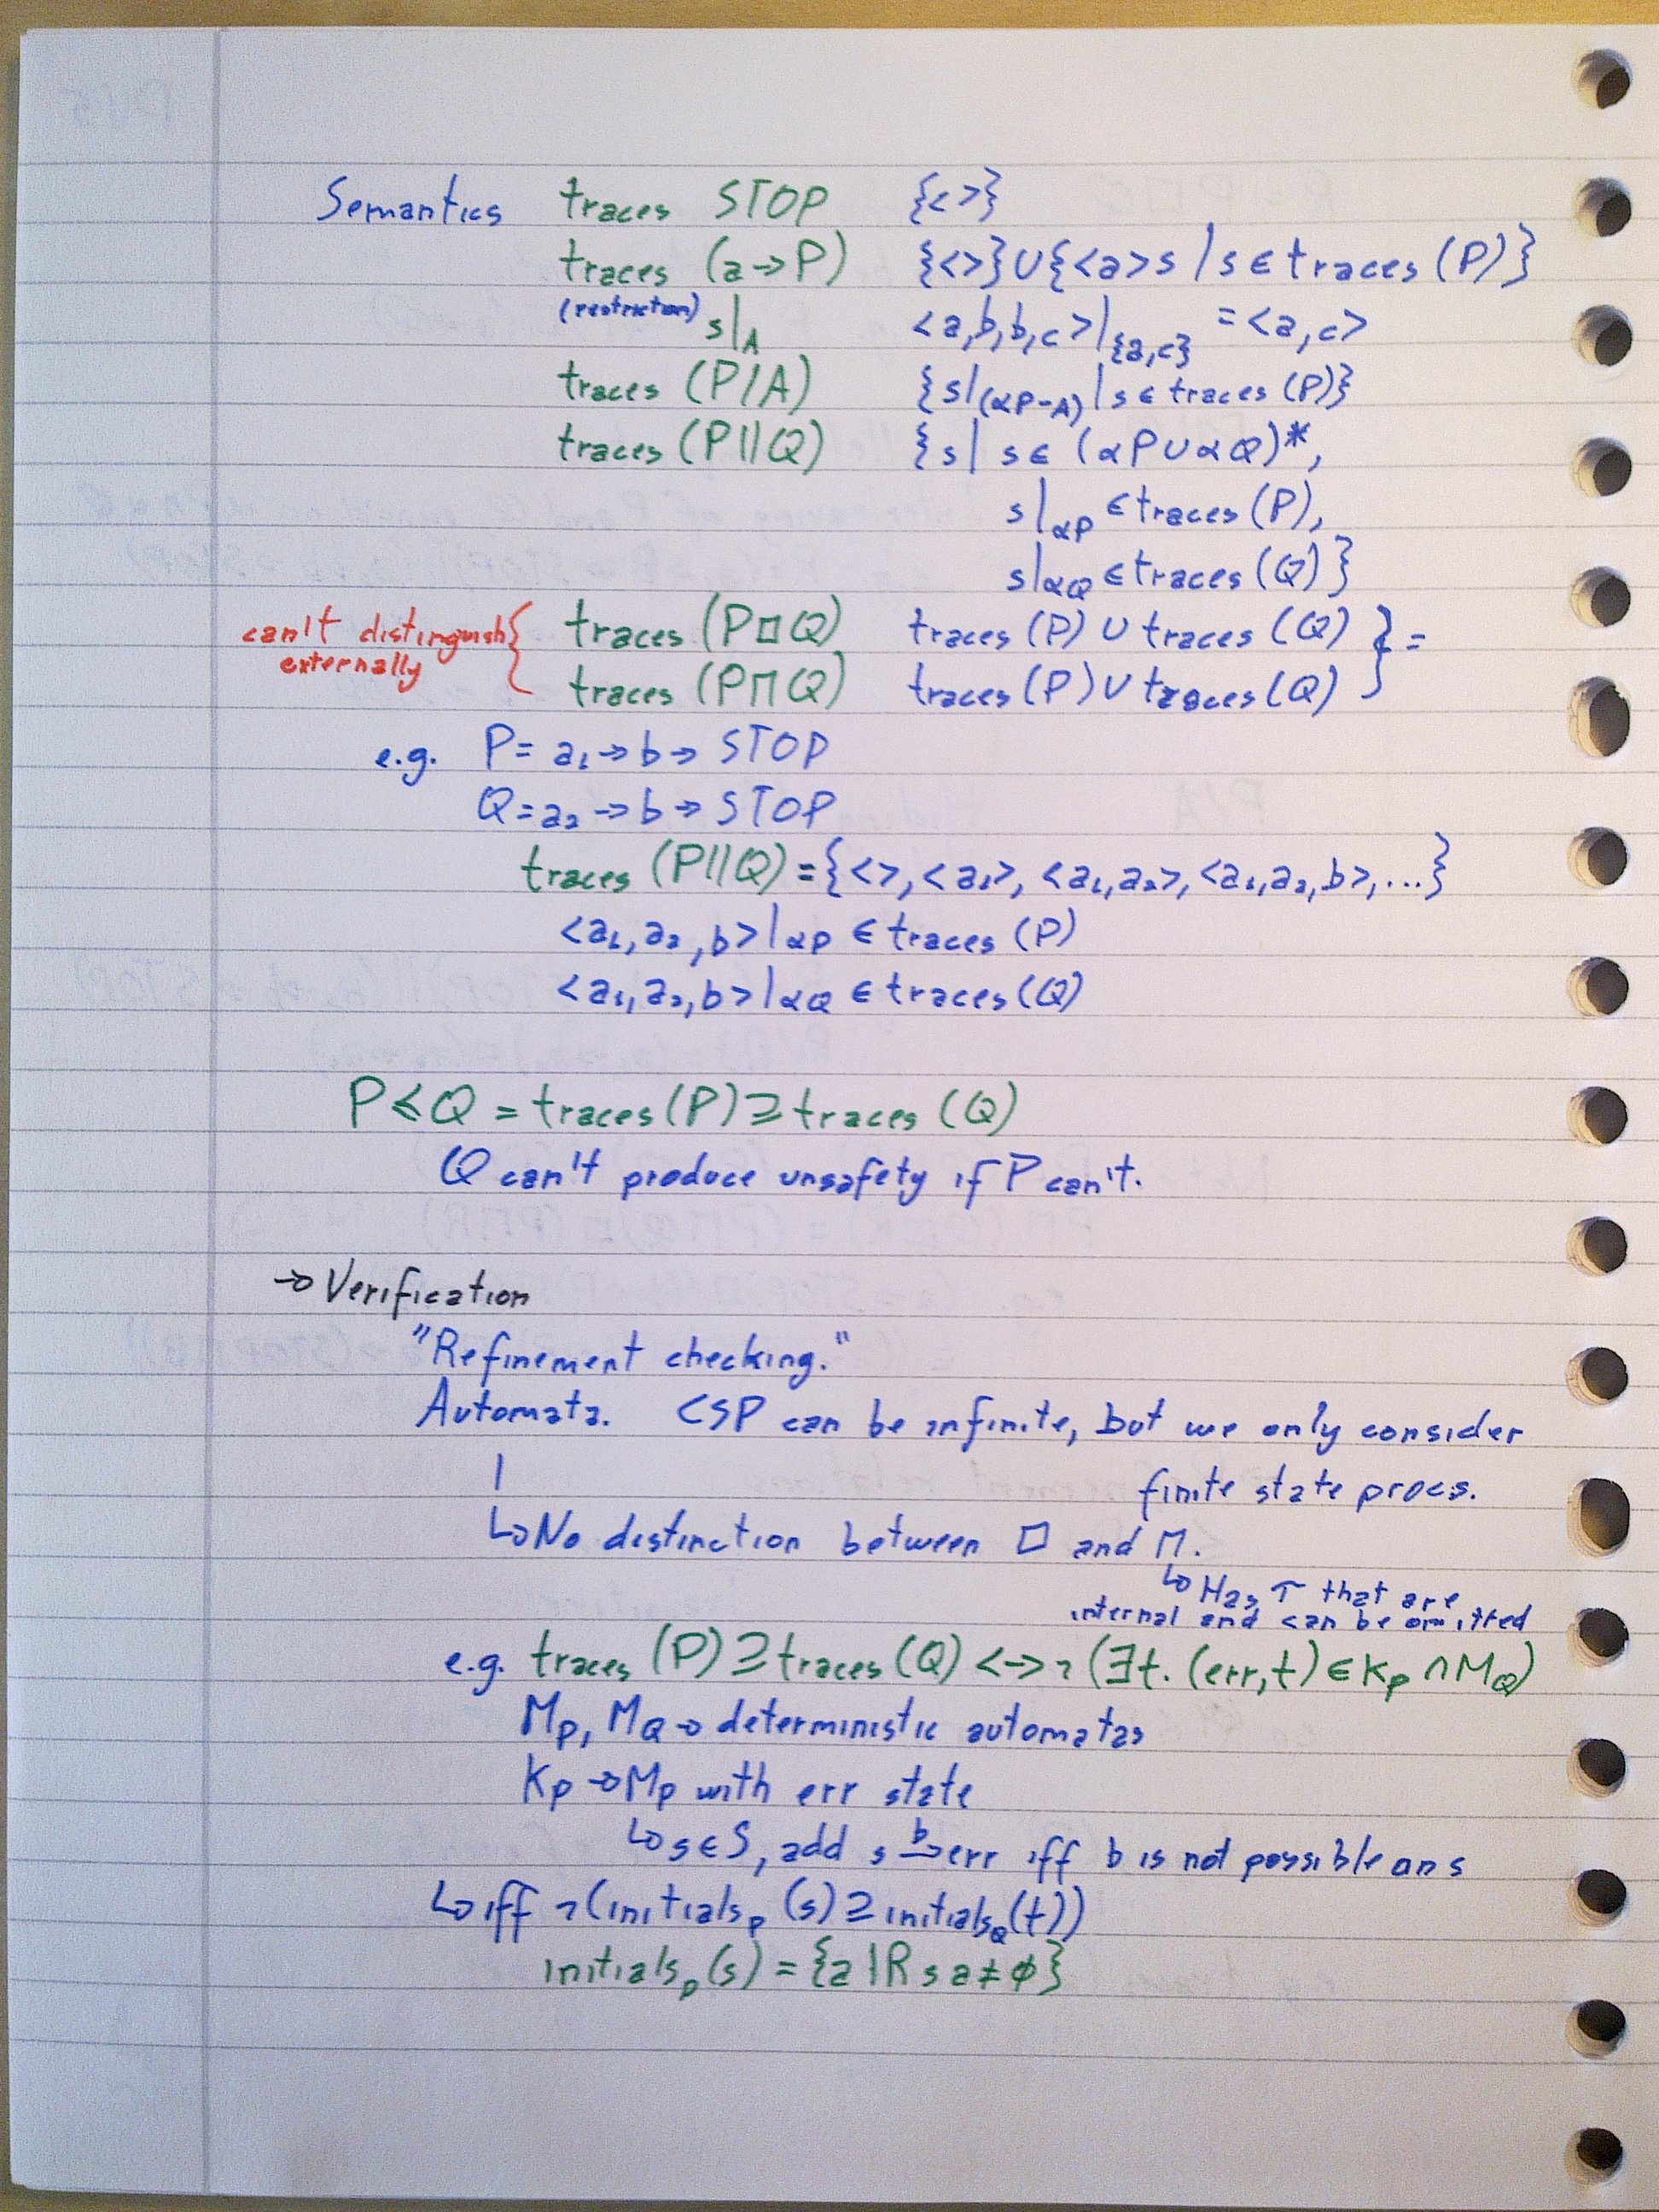 Semantics traces STOP {<>}
traces (a→P) {<>}∪{<a>s | s∈traces (P)}
(restriction) s|A <a,b,b,c>|{a,c} = <a,c>
traces (P/A) {s|(αP-A) | s∈traces (P)}
traces (P||Q) {s| s∈ (αP∪αQ)*,
s|αP ∈traces (P),
s|αQ ∈traces (Q)}
can't distinguish { traces (P□Q) traces (P) ∪ traces (Q) } =
externally traces (P⊓Q) traces (P) ∪ traces (Q)
e.g. P= a₁→b→ STOP
Q=a₂→b→STOP
traces (P||Q)={<>,<a₁>, <a₁,a₂>,<a₁,a₂,b>,...}
<a₁,a₂,b>|αP ∈traces (P)
<a₁,a₂,b>|αQ ∈traces (Q)
P≤Q = traces (P)⊇traces (Q)
Q can't produce unsafety if P can't.
→Verification
"Refinement checking."
Automata. CSP can be infinite, but we only consider
finite state procs.
↳No distinction between □ and ⊓.
↳Has τ that are
internal and can be omitted
e.g. traces (P)⊇traces (Q) <-> ¬(∃t. (err,t)∈Kp ∩MQ)
Mp, MQ→ deterministic automatas
Kp →Mp with err state
↳s∈S, add s -b→err iff b is not possible on s
↳iff ¬(initialsp (s)⊇initialsQ(t))
initialsp(s) = {a | R s a≠∅}